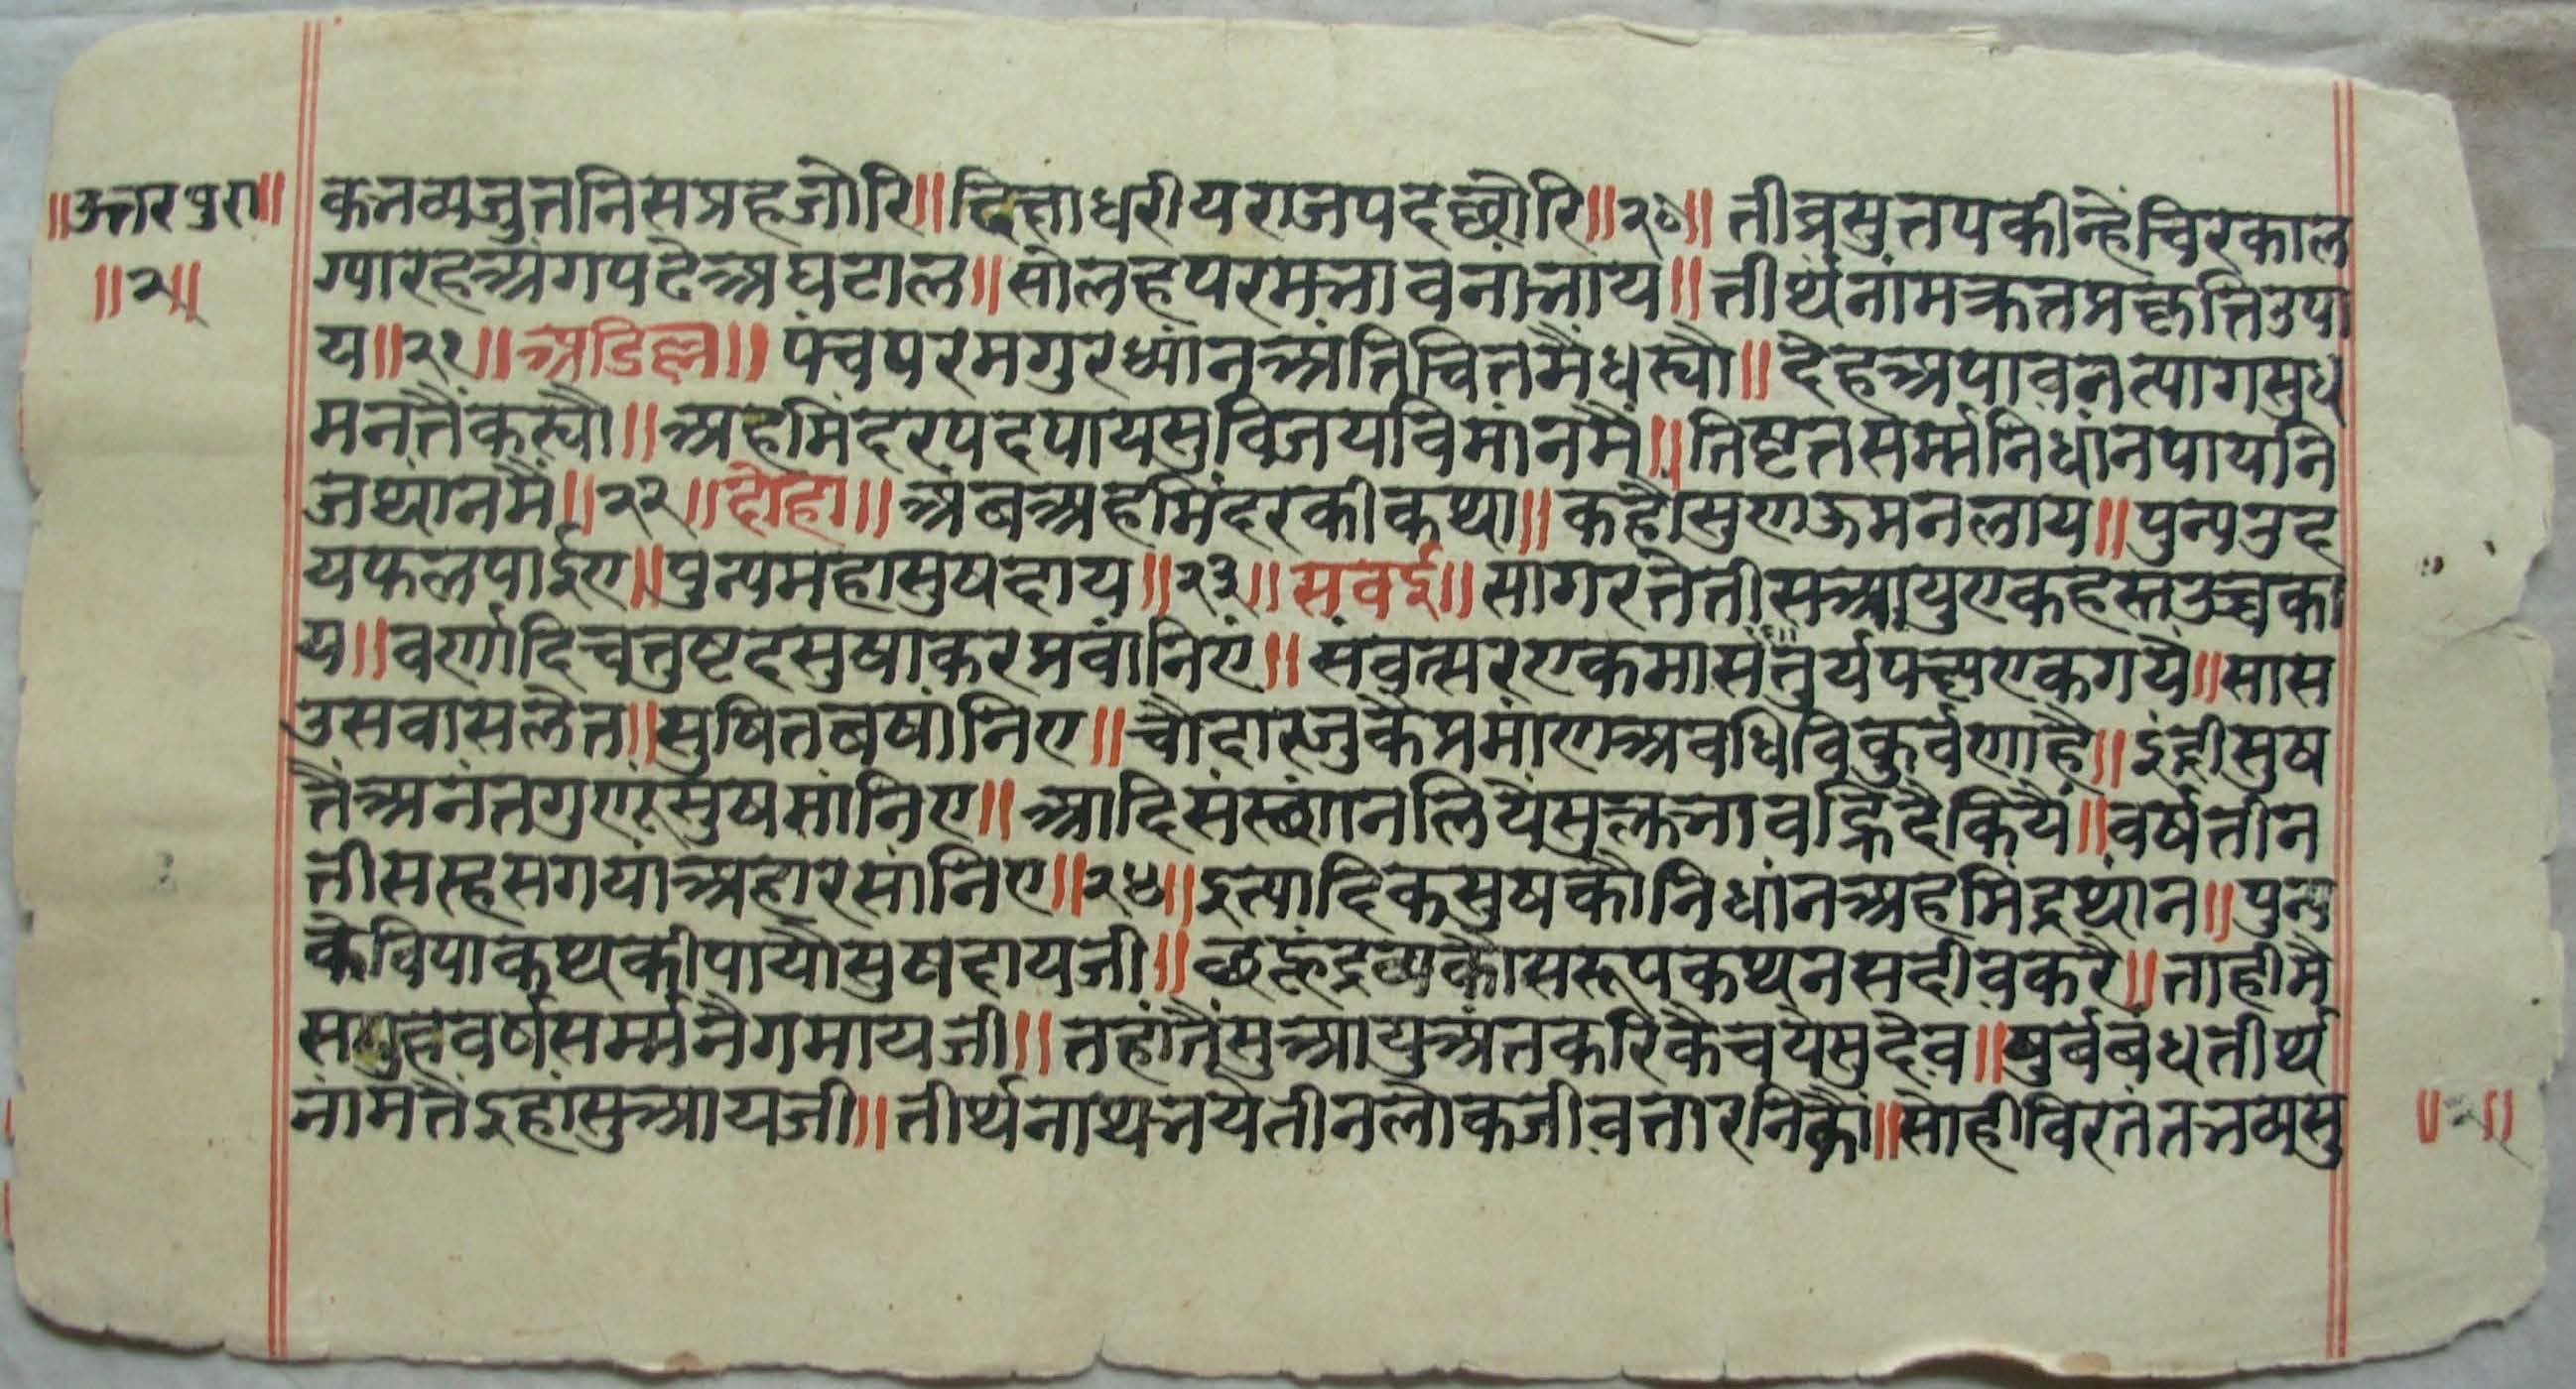 ॥उत्तरपुरा॥
॥२॥
कनव्यजुतनिसप्रहजोरि॥दित्ताधरीयराजपदछोरि॥२०॥तीव्रसुतपकीन्हैंचिरकाल
ग्यारहअंगपढैअघटाल॥सोलहपरमभावनांभाय॥तीर्थनांमक्रतप्रकृत्तिउपा
य॥२१॥अडिल्ल॥पंचपरमगुरध्यांनअंतिचितमैंधस्यौ॥देहअपावनत्यागसुध
मनतैंकस्यौ॥अहमिंदरपदपायसुविजयविमांनमैं॥तिष्टतसर्म्मनिधांनपायनि
जथांनमैं॥२२॥दोहा॥अबअहमिंदरकीकथा॥कहौसुणऊमनलाय॥पुन्यउद
यफलपाईए॥पुन्यमहासुषदाय॥२३॥सवई॥सागरतेतीसआयुएकहस्तउच्चका
य॥वर्णादिचतुष्टदसुषाकरप्रवांनिएं॥संवत्सरएकमासतुर्यपक्ष्यएकगयें॥सास
उसवासलेत॥सुषितबषांनिए॥चौदाराजुकैप्रमांणअवधिविकुर्वणाहै॥इंद्रीसुष
तैंअनंतगुणूंसुषमांनिए॥आदिसंस्थांनलियेंसुक्लभावह्रिदैकियैं॥वर्षतीन
तीसस्हसगयांअहारसांनिए॥२४॥इत्यादिकसुषकौनिधांनअहमिंद्रथांन॥पुन्य
केविपाकथकीपायौसुषदायजी॥छहूंद्रव्यकौसरूपकथनसदीवकरै॥ताहीमै
समुहवर्षसर्म्मनैगमायजी॥तहांतैंसुआयुअंतकरिकैचयैसुदेव॥षुर्बबंधतीर्थ
नांमतैंइहांसुआयजी॥तीर्थनाथभयेतीनलोकजीवतारनिकौं॥सोहीविरतंतभव्यसु
॥२॥